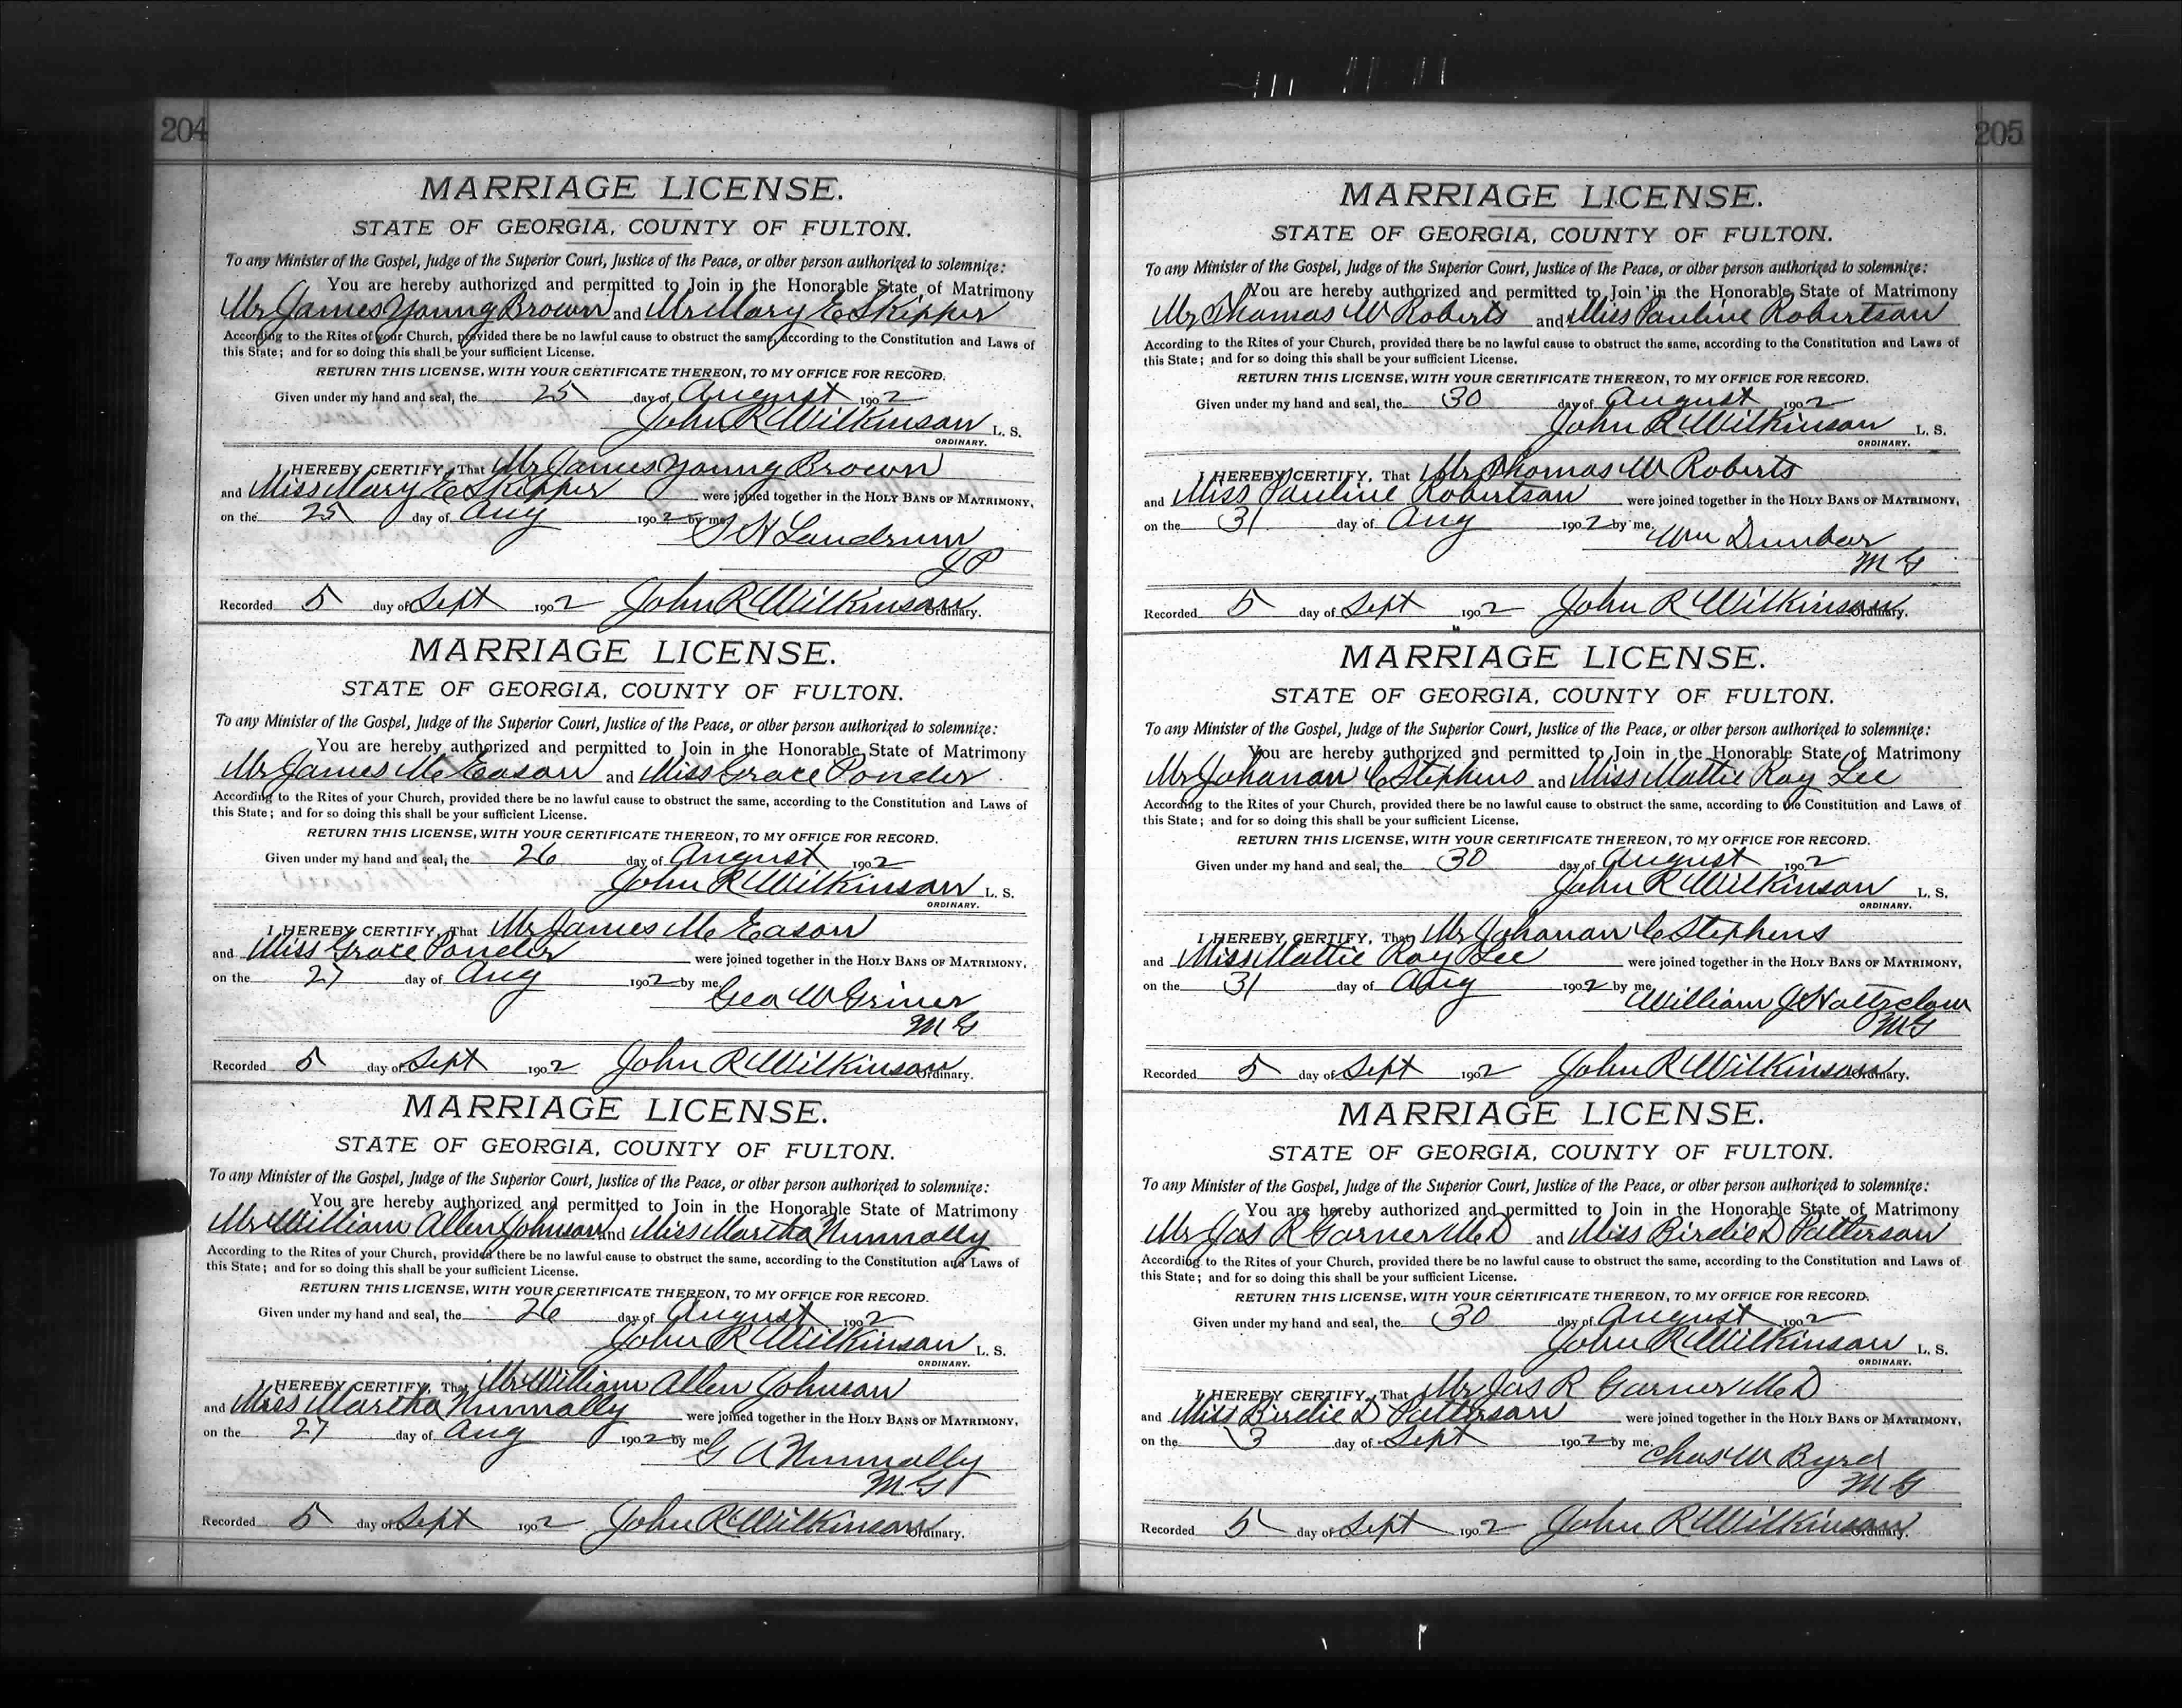 204
MARRIAGE LICENSE.
STATE OF GEORGIA, COUNTY OF FULTON.
To any Minister of the Gospel, Judge of the Superior Court, Justice of the Peace, or other person authorized to solemnize:
You are hereby authorized and permitted to Join in the Honorable State of Matrimony
Mr James Young Brown and Mr Mary E Skipper
According to the Rites of your Church, provided there be no lawful cause to obstruct the same, according to the Constitution and Laws of
this State; and for so doing this shall be your sufficient License.
RETURN THIS LICENSE, WITH YOUR CERTIFICATE THEREON, TO MY OFFICE FOR RECORD.
Given under my hand and seal, the 25 day of August 1902
John R Wilkinson L. S.
ORDINARY.
I HEREBY CERTIFY, That Mr James Young Brown
and Miss Mary E Skipper were joined together in the HOLY BANS OF MATRIMONY,
on the 25 day of Aug 1902 by me,
S H Landrum
JP
Recorded 5 day of Sept 1902 John R Wilkinson Ordinary.
MARRIAGE LICENSE.
STATE OF GEORGIA, COUNTY OF FULTON.
To any Minister of the Gospel, Judge of the Superior Court, Justice of the Peace, or other person authorized to solemnize:
You are hereby authorized and permitted to Join in the Honorable State of Matrimony
Mr James M Eason and Miss Grace Ponder
According to the Rites of your Church, provided there be no lawful cause to obstruct the same, according to the Constitution and Laws of
this State; and for so doing this shall be your sufficient License.
RETURN THIS LICENSE, WITH YOUR CERTIFICATE THEREON, TO MY OFFICE FOR RECORD.
Given under my hand and seal, the 26 day of August 1902
John R Wilkinson L. S.
ORDINARY.
I HEREBY CERTIFY, That Mr James M Eason
and Miss Grace Ponder were joined together in the HOLY BANS OF MATRIMONY,
on the 27 day of Aug 1902 by me,
Geo W Griner
M G
Recorded 5 day of Sept 1902 John R Wilkinson Ordinary.
MARRIAGE LICENSE.
STATE OF GEORGIA, COUNTY OF FULTON.
To any Minister of the Gospel, Judge of the Superior Court, Justice of the Peace, or other person authorized to solemnize:
You are hereby authorized and permitted to Join in the Honorable State of Matrimony
Mr William Allen Johnson and Miss Martha Nunnally
According to the Rites of your Church, provided there be no lawful cause to obstruct the same, according to the Constitution and Laws of
this State; and for so doing this shall be your sufficient License.
RETURN THIS LICENSE, WITH YOUR CERTIFICATE THEREON, TO MY OFFICE FOR RECORD.
Given under my hand and seal, the 26 day of August 1902
John R Wilkinson L. S.
ORDINARY.
I HEREBY CERTIFY, That Mr William Allen Johnson
and Miss Martha Nunnally were joined together in the HOLY BANS OF MATRIMONY,
on the 27 day of Aug 1902 by me
G A Nunnally
M G
Recorded 5 day of Sept 1902 John R Wilkinson Ordinary.
205
MARRIAGE LICENSE.
STATE OF GEORGIA, COUNTY OF FULTON.
To any Minister of the Gospel, Judge of the Superior Court, Justice of the Peace, or other person authorized to solemnize:
You are hereby authorized and permitted to Join in the Honorable State of Matrimony
Mr Thomas W Roberts and Miss Pauline Robertson
According to the Rites of your Church, provided there be no lawful cause to obstruct the same, according to the Constitution and Laws of
this State; and for so doing this shall be your sufficient License.
RETURN THIS LICENSE, WITH YOUR CERTIFICATE THEREON, TO MY OFFICE FOR RECORD.
Given under my hand and seal, the 30 day of August 1902
John R Wilkinson L. S.
ORDINARY.
I HEREBY CERTIFY, That Mr Thomas W Roberts
and Miss Pauline Robertson were joined together in the HOLY BANS OF MATRIMONY,
on the 31 day of Aug 1902 by me,
Wm Dunbar
M G
Recorded 5 day of Sept 1902 John R Wilkinson Ordinary.
MARRIAGE LICENSE.
STATE OF GEORGIA, COUNTY OF FULTON.
To any Minister of the Gospel, Judge of the Superior Court, Justice of the Peace, or other person authorized to solemnize:
You are hereby authorized and permitted to Join in the Honorable State of Matrimony
Mr Johanan C Stephens and Miss Mattie Ray Lee
According to the Rites of your Church, provided there be no lawful cause to obstruct the same, according to the Constitution and Laws of
this State; and for so doing this shall be your sufficient License.
RETURN THIS LICENSE, WITH YOUR CERTIFICATE THEREON, TO MY OFFICE FOR RECORD.
Given under my hand and seal, the 30 day of August 1902
John R Wilkinson L. S.
ORDINARY.
I HEREBY CERTIFY, That Mr Johanan C Stephens
and Miss Mattie Ray Lee were joined together in the HOLY BANS OF MATRIMONY,
on the 31 day of Aug 1902 by me
William J
MG
Recorded 5 day of Sept 1902 John R Wilkinson Ordinary.
MARRIAGE LICENSE.
STATE OF GEORGIA, COUNTY OF FULTON.
To any Minister of the Gospel, Judge of the Superior Court, Justice of the Peace, or other person authorized to solemnize:
You are hereby authorized and permitted to Join in the Honorable State of Matrimony
Mr Jas R Garner M D and Miss Birdie D Patterson
According to the Rites of your Church, provided there be no lawful cause to obstruct the same, according to the Constitution and Laws of
this State; and for so doing this shall be your sufficient License.
RETURN THIS LICENSE, WITH YOUR CERTIFICATE THEREON, TO MY OFFICE FOR RECORD.
Given under my hand and seal, the 30 day of August 1902
John R Wilkinson L. S.
ORDINARY.
I HEREBY CERTIFY, That Mr Jas R Garner M D
and Miss Birdie D Patterson were joined together in the HOLY BANS OF MATRIMONY,
on the 3 day of Sept 1902 by me.
Chas W Byrd
M G
Recorded 5 day of Sept 1902 John R Wilkinson Ordinary.